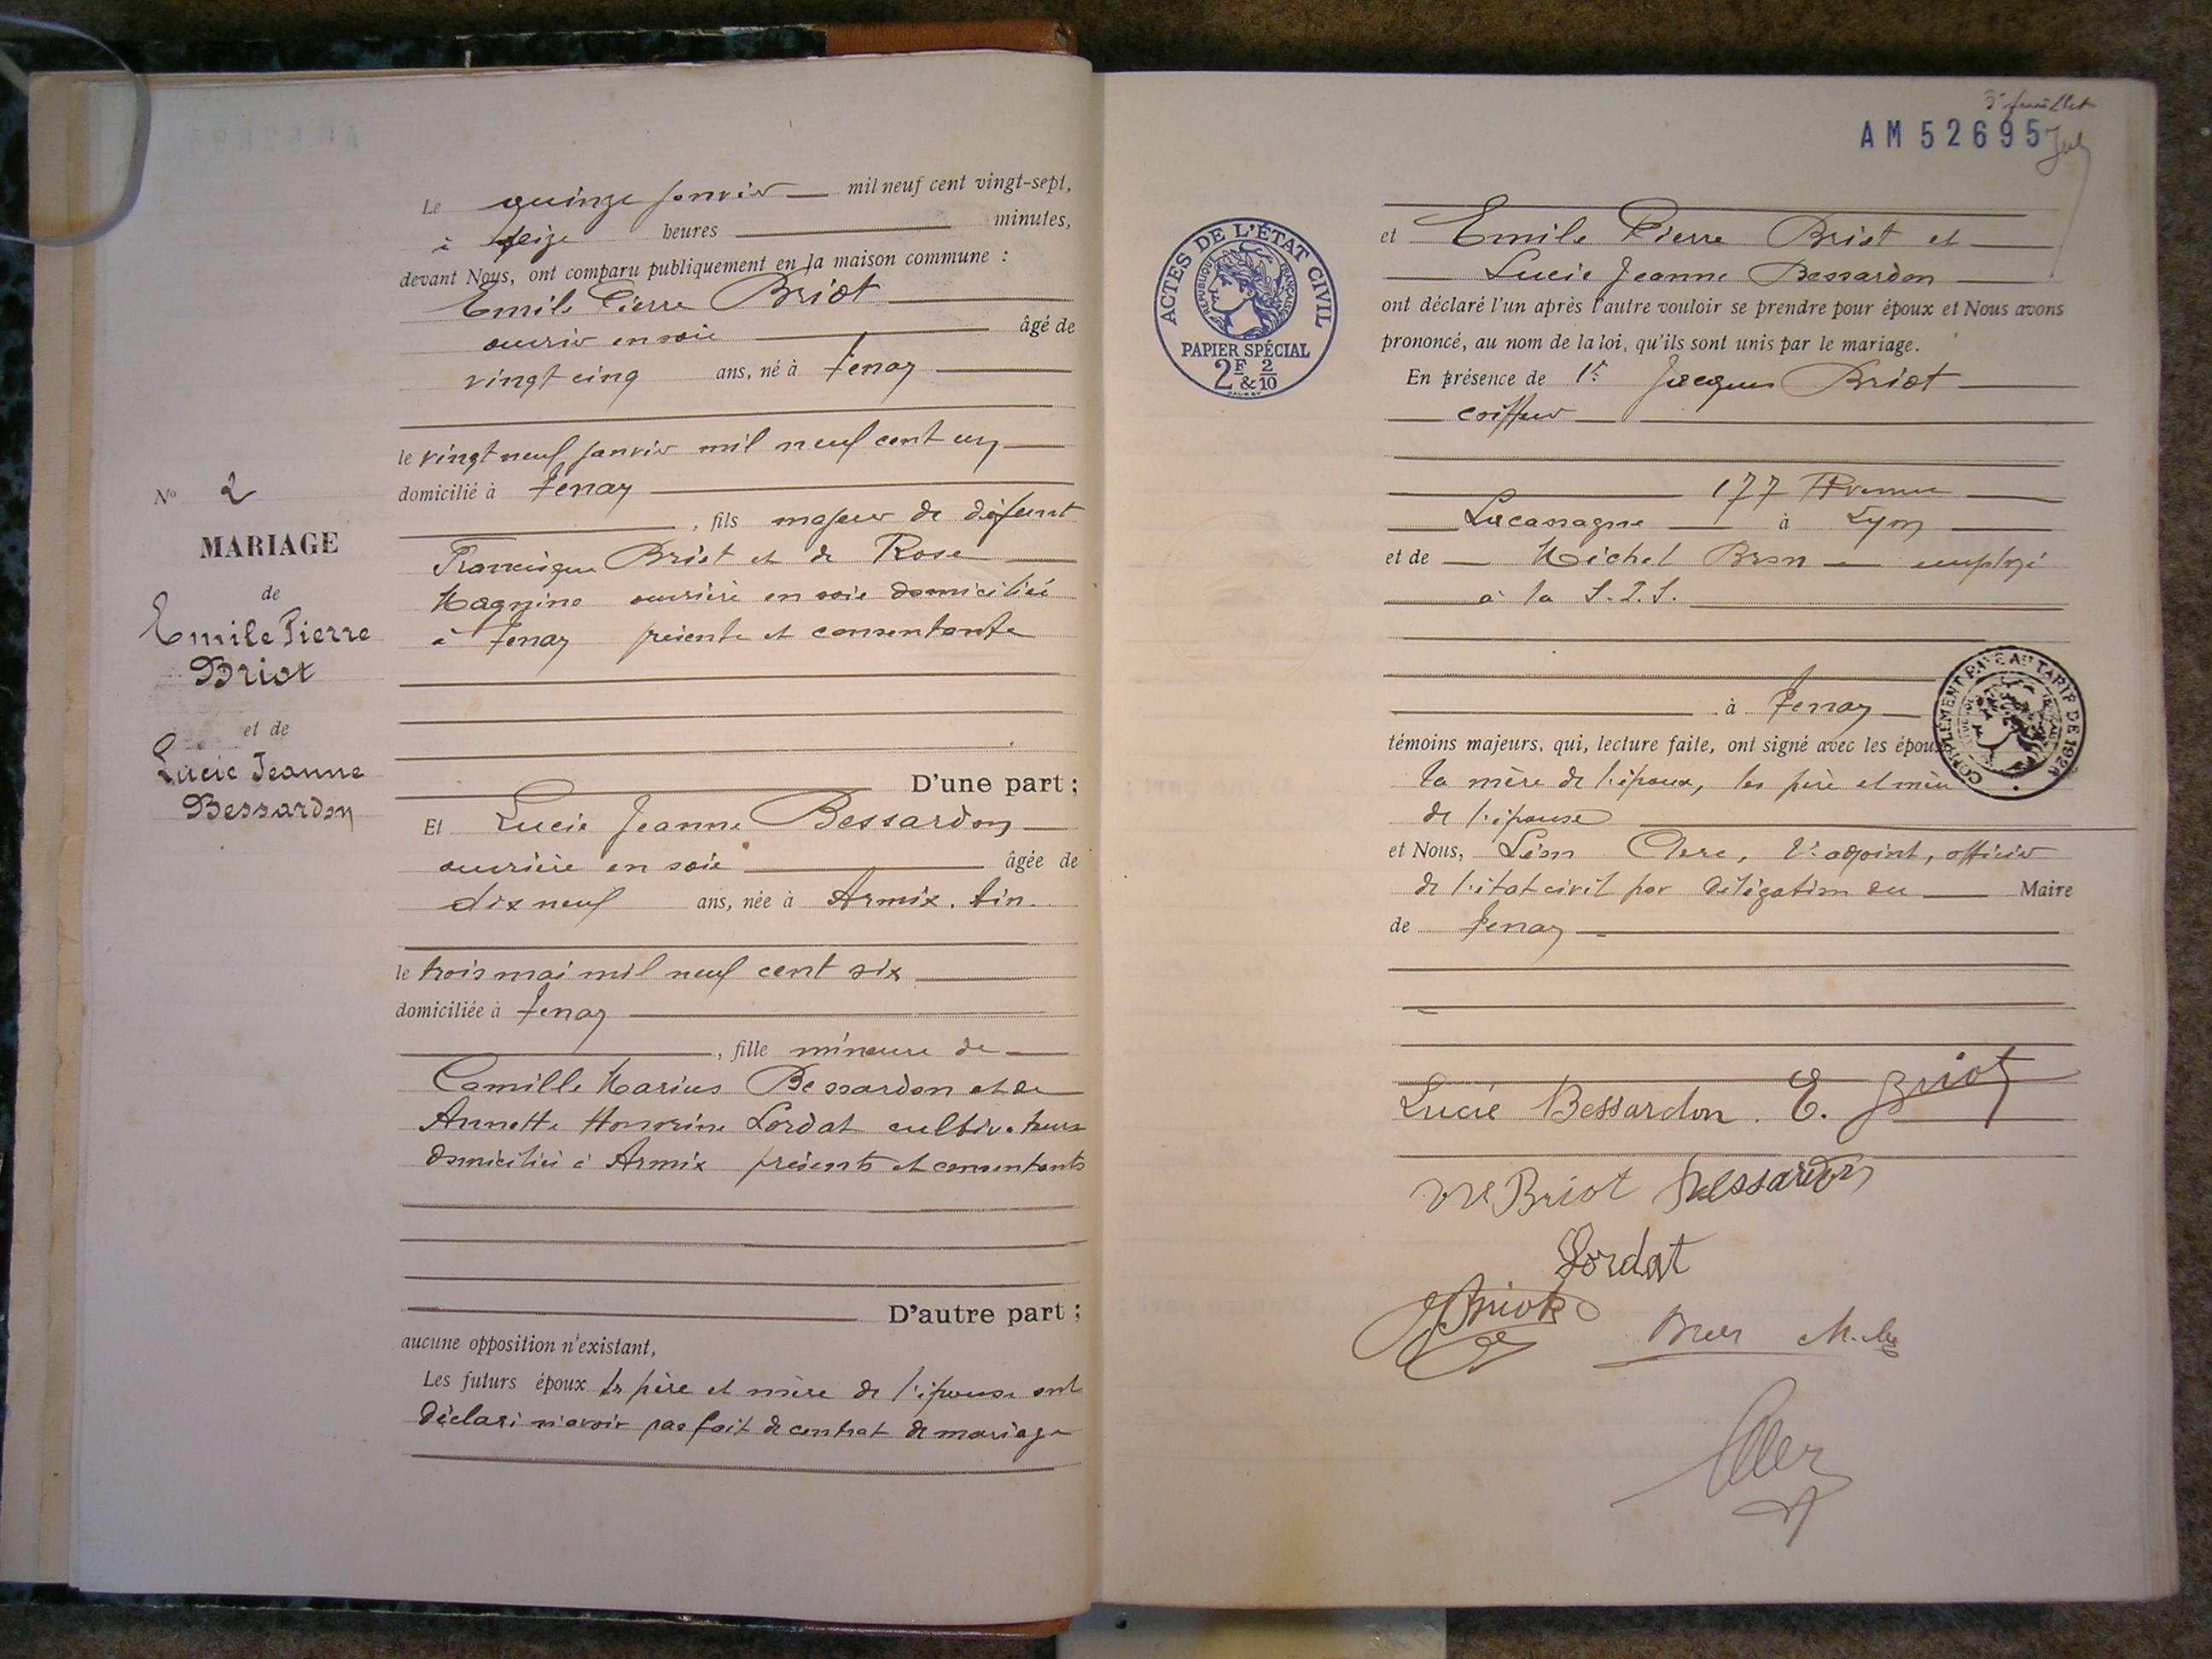 Le quinze janvier mil neuf cent vingt-sept,
à seize heures minutes,
devant Nous, ont comparu publiquement en la maison commune :
Emile Pierre Briot
ouvrier en soie âgé de
vingt cinq ans, né à Tenay
le vingt neuf janvier mil neuf cent un
domicilié à Tenay
, fils majeur de défunt
Francisque Briot et de Rose
Magnino ouvrière en soie domiciliée
à Tenay présente et consentante
D'une part ;
Et Lucie Jeanne Bessardon
ouvrière en soie âgée de
dix neuf ans, née à Armix. Ain.
le trois mai mil neuf cent six
domiciliée à Tenay
, fille mineure de
Camille Marius Bessardon et de
Annette Honorine Lordat cultivateurs
domiciliés à Armix présents et consentants
D'autre part ;
aucune opposition n'existant,
Les futurs époux les père et mère de l'épouse ont
déclaré n'avoir pas fait de contrat de mariage
N° 2
MARIAGE
de
Emile Pierre
Briot
et de
Lucie Jeanne
Bessardon
3e feuillet
AM 52695
ACTES DE L'ÉTAT CIVIL
RÉPUBLIQUE FRANÇAISE
PAPIER SPÉCIAL
2F & 2/10
et Emile Pierre Briot et
Lucie Jeanne Bessardon
ont déclaré l'un après l'autre vouloir se prendre pour époux et Nous avons
prononcé, au nom de la loi, qu'ils sont unis par le mariage.
En présence de 1t Jacques Briot
coiffeur
177 Avenue
Lacassagne à Lyon
et de Michel Bron employé
à la S.I.S.
à Tenay
témoins majeurs, qui, lecture faite, ont signé avec les époux
la mère de l'époux, les père et mère
de l'épouse
et Nous, Léon Clerc, 1er adjoint, officier
de l'état civil par délégation du Maire
de Tenay
COMPLÉMENT PAYÉ AU TARIF DE 1926
Lucie Bessardon. E. Briot
Ve Briot Bessardon
Lordat
JBriot